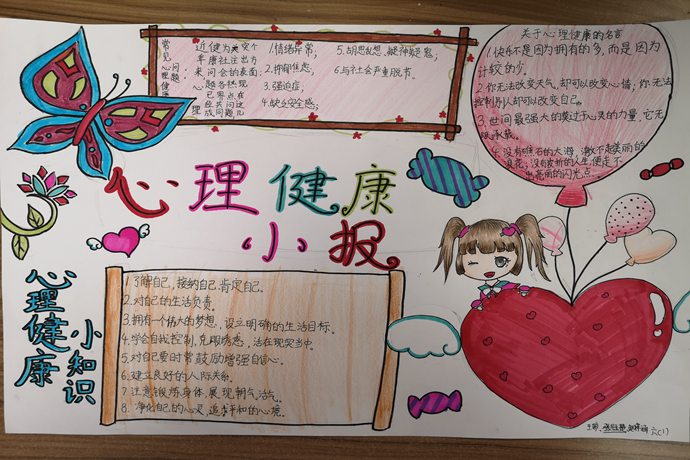 常见心理健康问题:
近年来,
健康问题
为社会各
关会的表现
突出方面:
1.情绪异常;
2.抑郁焦虑;
3.强迫症;
4.缺乏安全感;
5.胡思乱想、疑神疑鬼;
6.与社会严重脱节。
关于心理健康的名言
1.快乐不是因为拥有的多,而是因为
计较的少。
2.你无法改变天气,却可以改变心情;你无法
控制别人却可以改变自己。
3.世间最强大的莫过于心灵的力量,它无
4.没有礁石的大海,激不起美丽的
浪花;没有挫折的人生,便走不
出亮丽的闪光点。
心理健康
小报
心理健康
小知识
1.了解自己,接纳自己,肯定自己。
2.对自己的生活负责。
3.拥有一个伟大的梦想,设立明确的生活目标。
4.学会自我控制,克服诱惑,活在现实当中。
5.对自己要时常鼓励增强自信心。
6.建立良好的人际关系。
7.注意锻炼身体,展现朝气活气。
8.净化自己的心灵,追求平和的心境。
六(1)